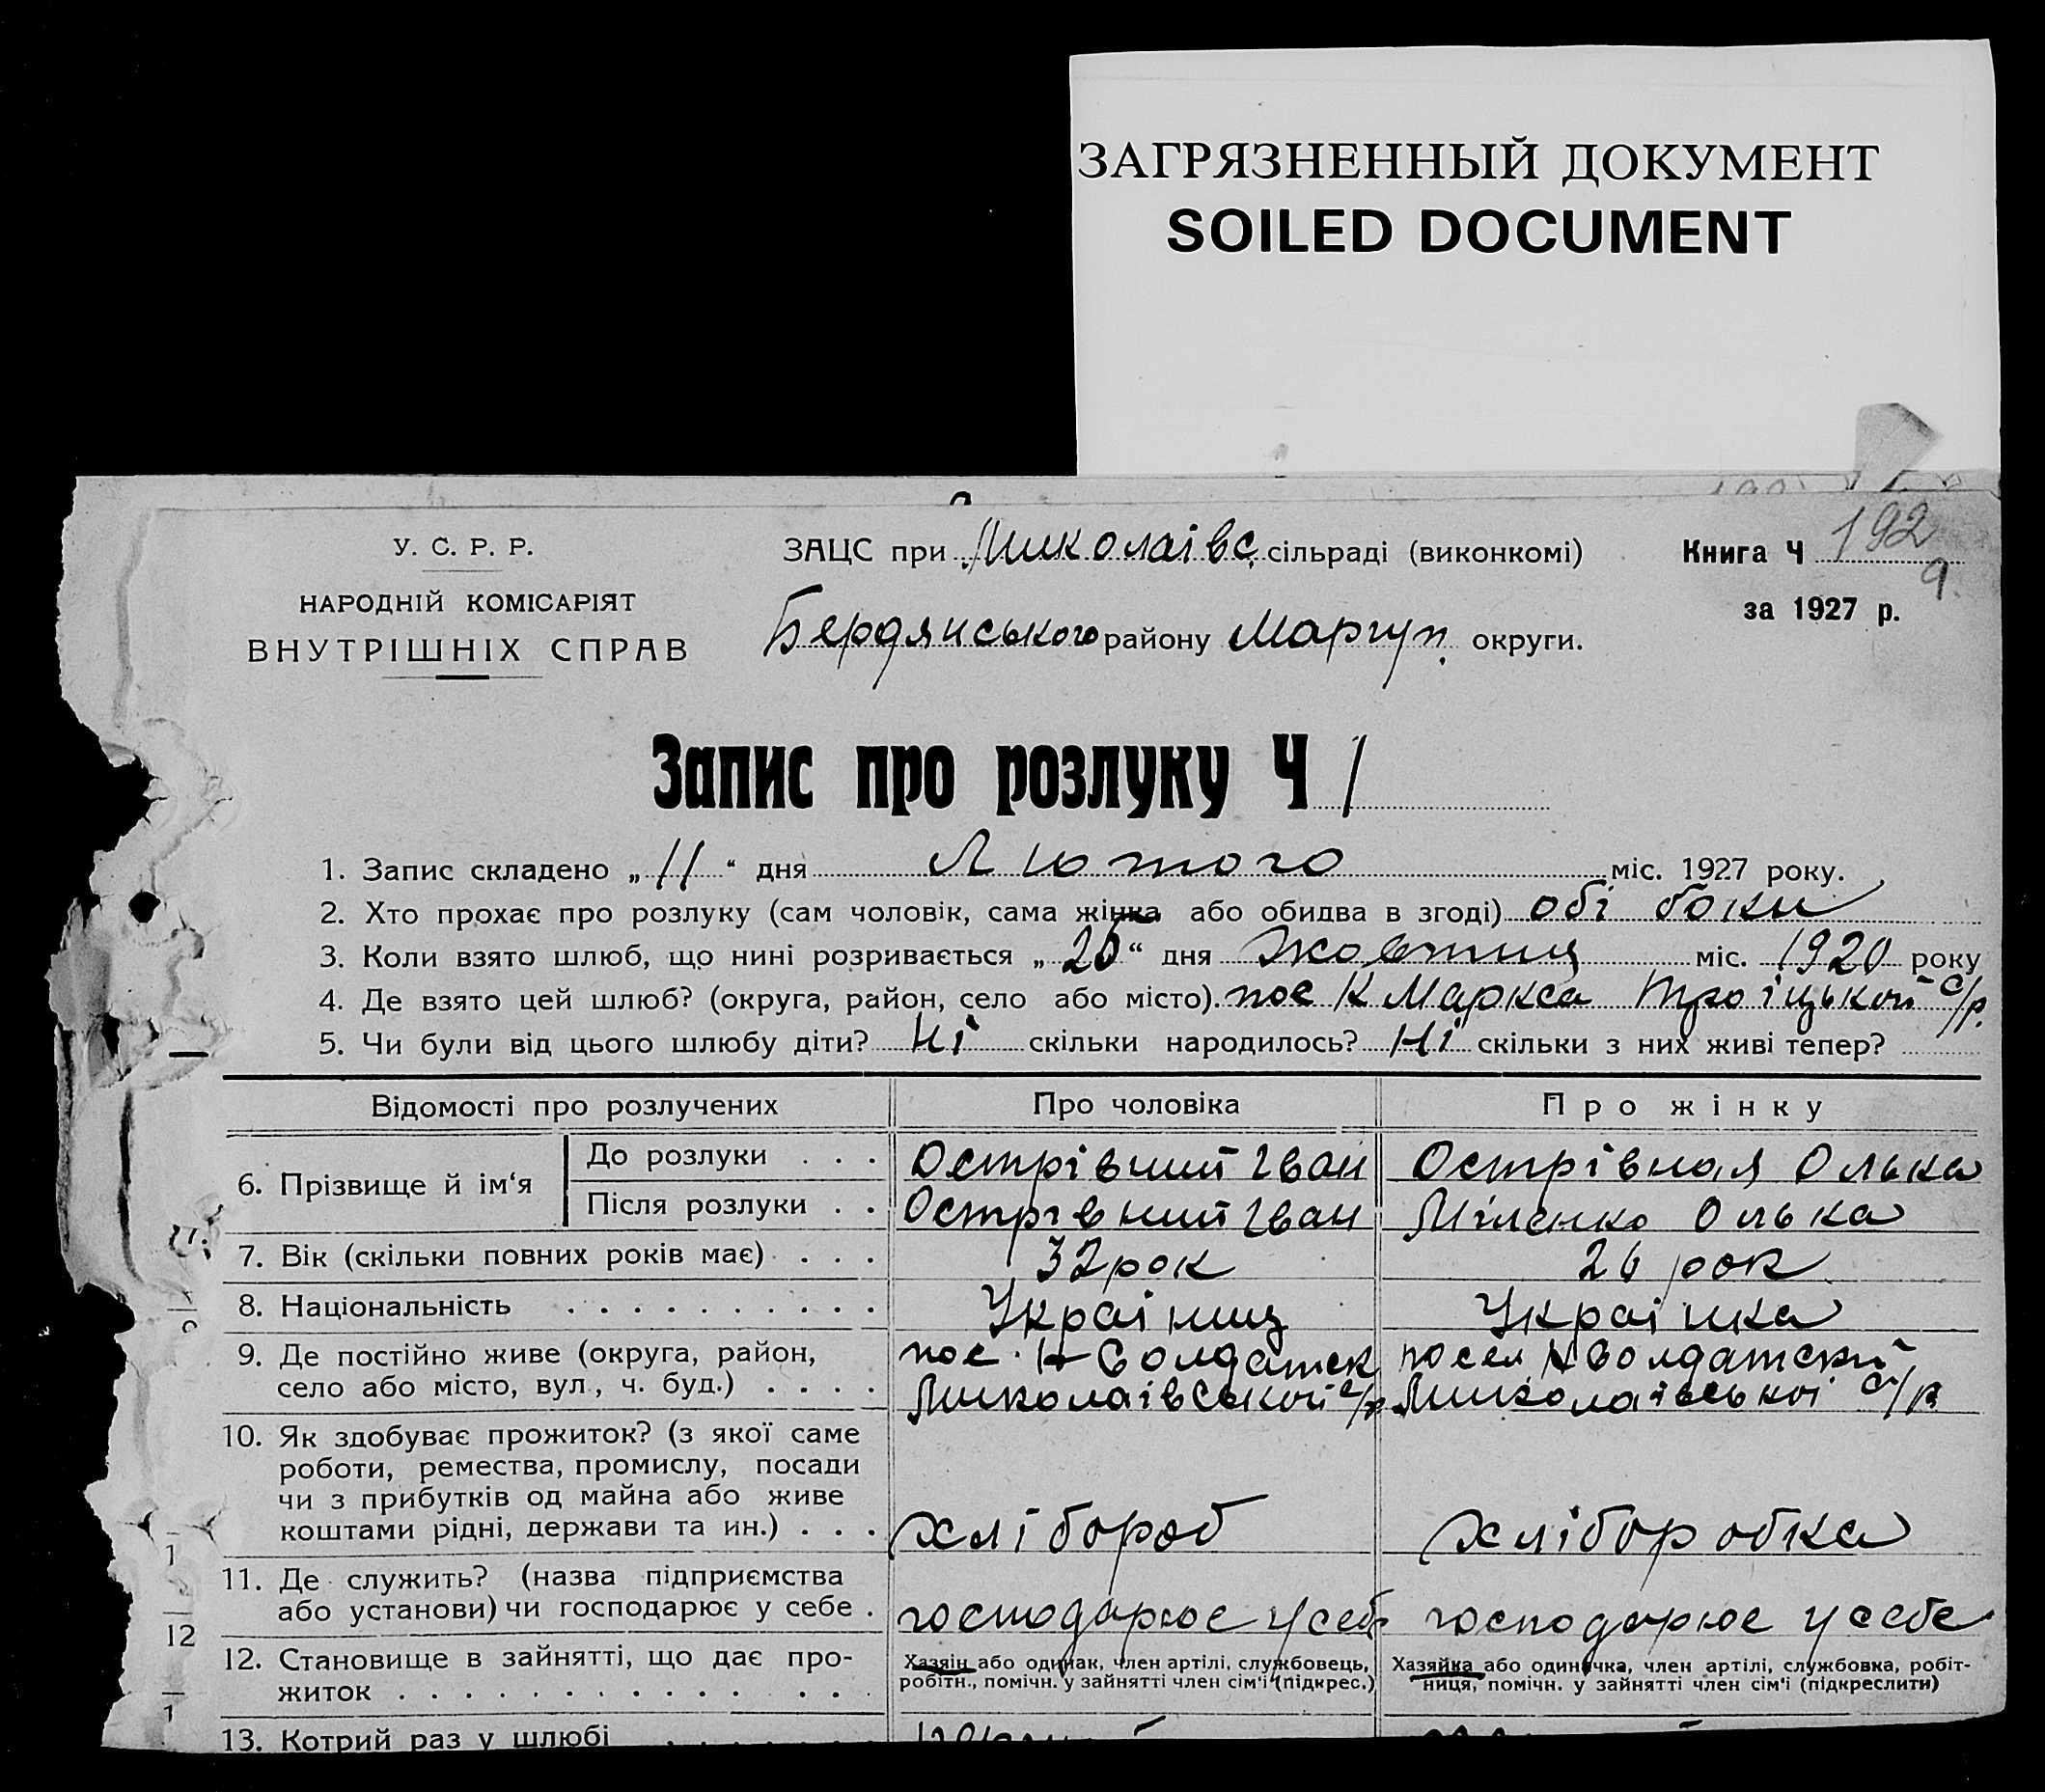 ЗАГРЯЗНЕННЫЙ ДОКУМЕНТ
SOILED DOCUMENT
У. С. Р. Р.
НАРОДНІЙ КОМІСАРІЯТ
ВНУТРІШНІХ СПРАВ
ЗАЦС при Миколаівс. сільраді (виконкомі)
Бердянського району Маріуп. округи.
Книга Ч 192
9
за 1927 р.
Запис про розлуку Ч 1
1. Запис складено „11“ дня Лютого міс. 1927 року.
2. Хто прохає про розлуку (сам чоловік, сама жінка або обидва в згоді) обі боки
3. Коли взято шлюб, що нині розривається „26“ дня Жовтня міс. 1920 року
4. Де взято цей шлюб? (округа, район, село або місто). пос К Маркса Троіцькоі с/р.
5. Чи були від цього шлюбу діти? Ні скільки народилось? Ні скільки з них живі тепер?
Відомості про розлучених Про чоловіка Про жінку
6. Прізвище й ім‘я
До розлуки . . . Острівний Іван Острівная Олька
Після розлуки . . Острівний Іван Міленко Олька
7. Вік (скільки повних років має) . . . 32 рок 26 рок
8. Національність . . . . . . . . . . Украіниц Украінка
9. Де постійно живе (округа, район, село або місто, вул., ч. буд.) . . . .
пос. Н-Солдатск Миколаівськоі с/р
посел Н Солдатский Миколаівськоі с/р
10. Як здобуває прожиток? (з якої саме
роботи, ремества, промислу, посади
чи з прибутків од майна або живе
коштами рідні, держави та ин.) . . . хлібороб хліборобка
11. Де служить? (назва підприємства
або установи) чи господарює у себе . господарює у себе господарює у себе
12. Становище в зайнятті, що дає про-
житок . . . . . . . . . . . . . . .
Хазяїн або одинак, член артілі, службовець,
робітн., помічн. у зайнятті член сім‘ї (підкрес.)
Хазяйка або одиначка, член артілі, службовка, робіт-
ниця, помічн. у зайнятті член сім‘ї (підкреслити)
13. Котрий раз у шлюбі . . . . . . .